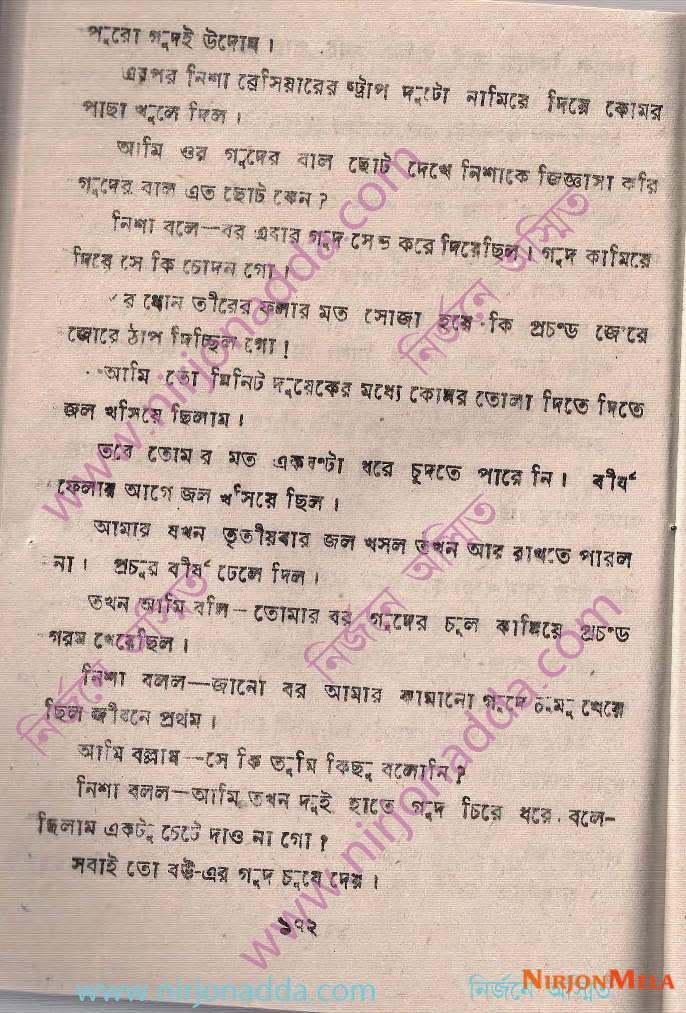 পুরো গুদই উদোম।
এরপর নিশা ব্রেসিয়ারের স্ট্রাপ দুটো নামিয়ে দিয়ে কোমর
পাছা খুলে দিল।
আমি ওর গুদের বাল ছোট দেখে নিশাকে জিজ্ঞাসা করি
গুদের বাল এত ছোট কেন?
নিশা বলে—বর এবার গুদ সেভ করে দিয়েছিল। গুদ কামিয়ে
দিয়ে সে কি চোদন গো।
র ধোন তীরের ফলার মত সোজা হয়ে কি প্রচন্ড জোরে
জোরে ঠাপ দিচ্ছিল গো!
আমি তো মিনিট দুয়েকের মধ্যে কোমর তোলা দিতে দিতে
জল খসিয়ে ছিলাম।
তবে তোমার মত একঘণ্টা ধরে চুদতে পারে নি। বীর্য
ফেলার আগে জল খসিয়ে ছিল।
আমার যখন তৃতীয়বার জল খসল তখন আর রাখতে পারল
না। প্রচুর বীর্য ঢেলে দিল।
তখন আমি বলি—তোমার বর গুদের চুল কামিয়ে প্রচন্ড
গরম খেয়েছিল।
নিশা বলল—জানো বর আমার কামানো গুদে চুমু খেয়ে
ছিল জীবনে প্রথম।
আমি বল্লাম—সে কি তুমি কিছু বলোনি?
নিশা বলল—আমি তখন দুই হাতে গুদ চিরে ধরে বলে-
ছিলাম একটু চেটে দাও না গো?
সবাই তো বউ-এর গুদ চুষে দেয়।
১৭২
www.nirjonadda.com
নির্জনে অস্মিত
www.nirjonadda.com
নির্জনে অস্মিত
নির্জনে অস্মিত
www.nirjonadda.com
নির্জনে অস্মিত
NIRJONMELA